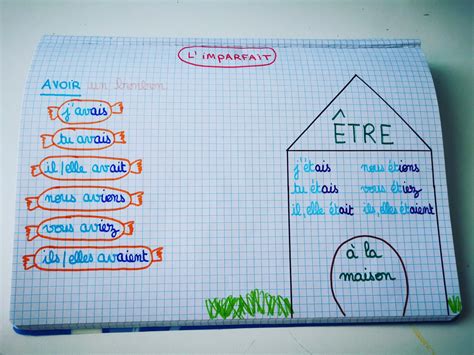 L'IMPARFAIT
AVOIR un bonbon
j'avais
tu avais
il/elle avait
nous avions
vous aviez
ils/elles avaient
ÊTRE
j'étais nous étions
tu étais vous étiez
il, elle était ils, elles étaient
à la
maison